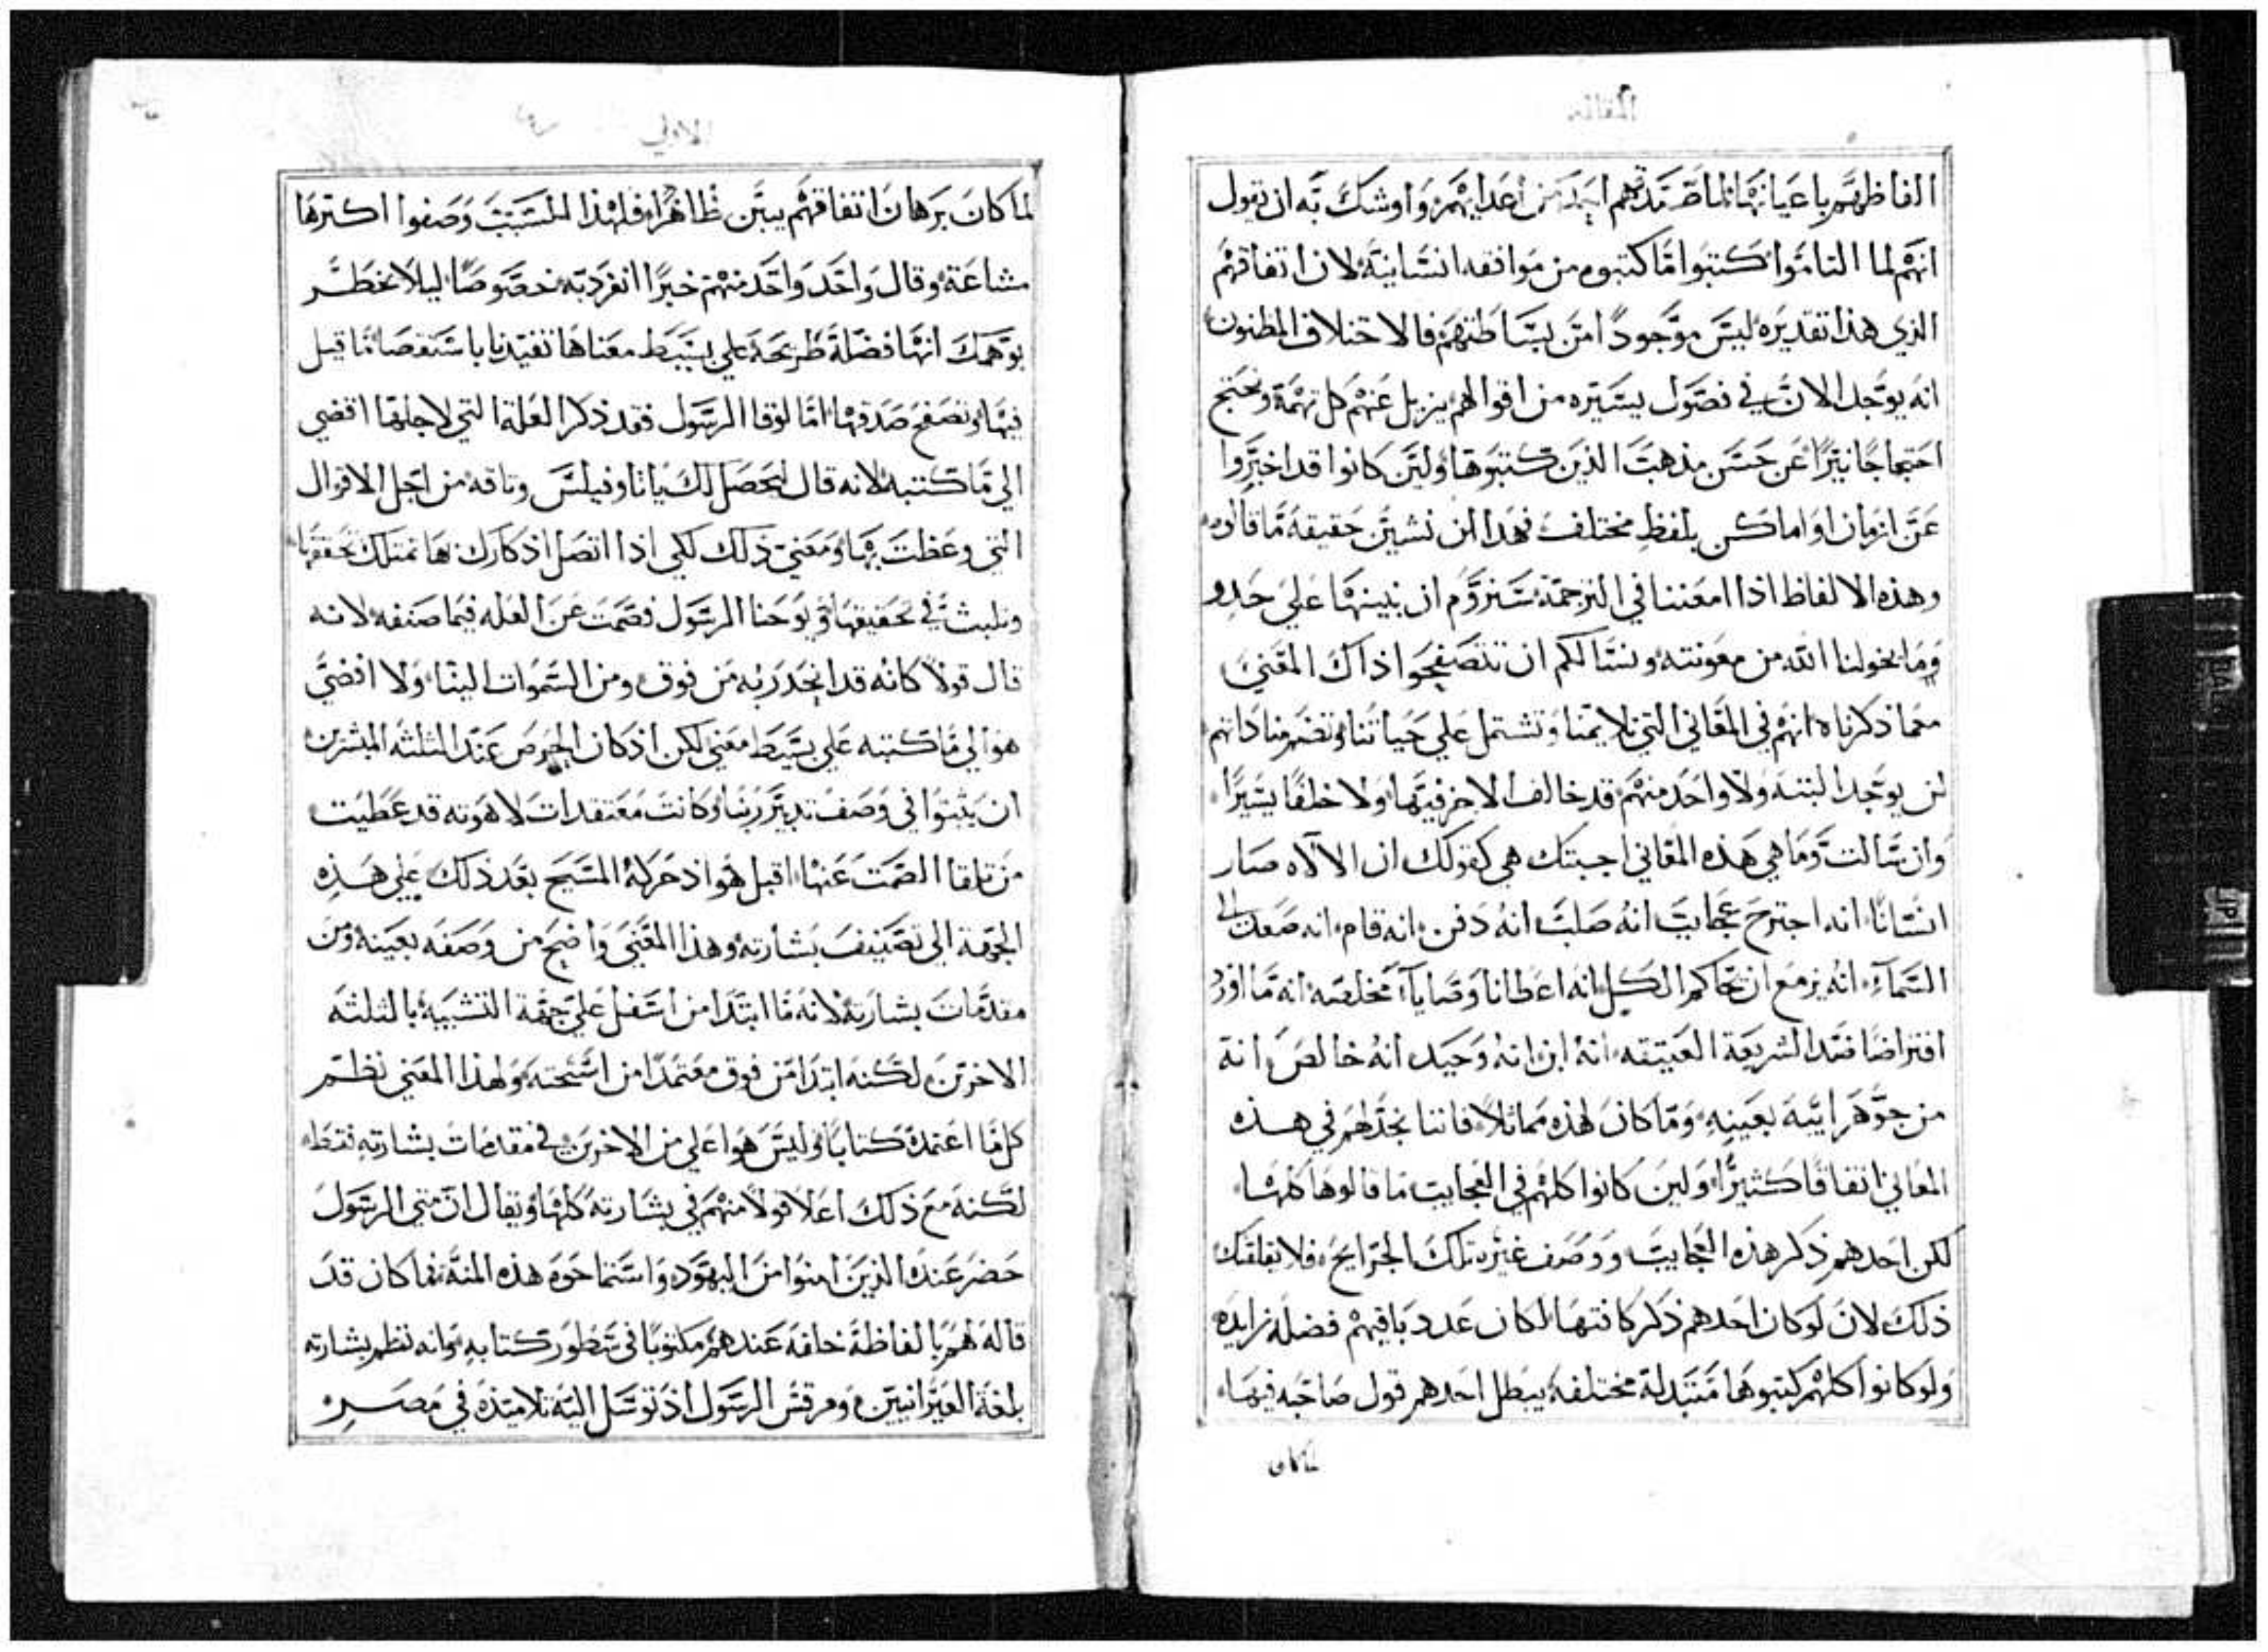 المقاله
الفاظهم باعيانها لما صدقهم احد من أعدايهم واوشك به ان يقول
انهم لما التاموا كتبوا ما كتبوه من موافقه انسانية لان اتفاقهم
الذي هذا تقديره ليس موجودًا من بساطتهم فالاختلاف المظنون
انه يوجد الان في فصول يسيره من اقوالهم يزيل عنهم كل تهمة ويحتج
احتجاجًا نيرًا عن حسن مذهب الذين كتبوها ولين كانوا قد اخبروا
عن ازمان او اماكن بلفظٍ مختلف فهذا لن نشين حقيقة ما قالوه
وهذه الالفاظ اذا امعننا في الترجمة سنروم ان نبينها علي حدو
وما يخولنا الله من معونته ونسالكم ان تتصفحوا ذاك المعني
معما ذكرناه انهم في المعاني التي تلايمنا وتشتمل علي حياتنا وتضم مناداتهم
لن يوجد البته ولا واحد منهم قد خالف الاخر فيها ولا خلفًا يسيرًا
وان سالت وما هي هذه المعاني اجبتك هي كقولك ان الالاه صار
انسانًا انه اجترح عجايب انه صلب انه دفن انه قام انه صعد الى
السمآء انه يزمع ان يحاكم الكل انه اعطانا وصايا مخلصه انه ما اورد
افتراضًا ضد الشريعة العتيقه انه ابن انه وحيد انه خالص انه
من جوهر ابيه بعينه وما كان لهذه مماثلاً فاننا نجدهم في هذه
المعاني اتفاقًا كثيرًا ولين كانوا كلهم في العجايب ما قالوها كلها
لكن احدهم ذكر هذه العجايب ووصف غيره تلك الجرايح فلا يقلقك
ذلك لان لو كان احدهم ذكر كافتها لكان عدد باقيهم فضلة زايده
ولو كانوا كلهم كتبوها متبدلة مختلفة يبطل احدهم قول صاحبه فيها
لما كان
الاولي
لما كان برهان اتفاقهم يبين ظاهرًا فلهذا السبب وصفوا اكثرها
مشاعة وقال واحد واحد منهم خبرًا انفرد به خصوصًا ليلا يخطر
بوهمك انها فضلة طريحة علي بسيط معناها تفيدنا باستقصا ما قيل
فيها وتصفح صدقها اما لوقا الرسول فقد ذكر العلة التي لاجلها افضي
الي ما كتبه لانه قال ليحصل لك ياثاوفيلس وثاقه من اجل الاقوال
التي وعظت بها ومعني ذلك لكي اذا اتصل اذكارك بها تمتلك تحققها
وتلبث في تحقيقها ويوحنا الرسول فصمت عن العله فيما صنفه لانه
قال قولاً كانه قد انحدر به من فوق ومن السموات الينا ولا افضي
هو الي ما كتبه علي بسيط معني لكن اذ كان الحرص عند الثلثه المبشرين
ان يثبتوا في وصف تدبير ربنا وكانت معتقدات لاهوته قد عطيت
من تلقا الصمت عنها اقبل هو اذ حركه المسيح بعد ذلك علي هذه
الجهة الي تصنيف بشارته وهذا المعني واضح من وصفه بعينه ومن
مقدمات بشارته لانه ما ابتدا من اسفل علي جهة التشبيه بالثلثه
الاخرين لكنه ابتدا من فوق معتمدًا من استحته ولهذا المعني نظم
كل ما اعتمده كتابًا وليس هو اعلي من الاخرين في مقدمات بشارته فقط
لكنه مع ذلك اعلا قولاً منهم في بشارته كلها ويقال ان متي الرسول
حضر عنده الذين امنوا من اليهود واستماحوه هذه المنة فما كان قد
قاله لهم بالفاظة خلفه عندهم مكتوبًا في سطور كتابه وانه نظم بشارته
بلغة العبرانيين ومرقس الرسول اذ توسل اليه تلاميذه في مصر